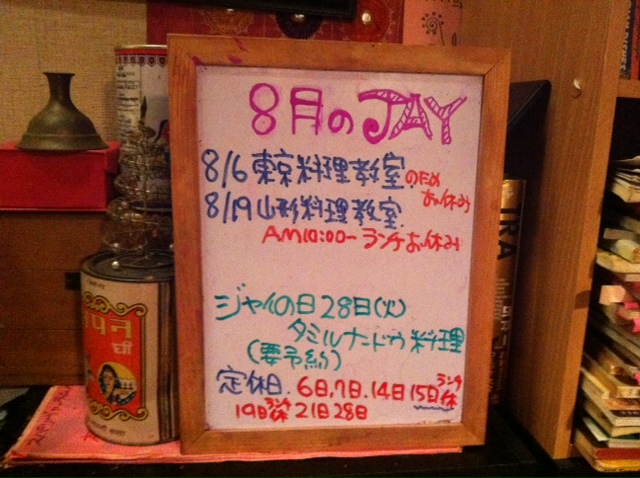 8月のJAY
8/6 東京料理教室のためお休み
8/19 山形料理教室
AM10:00〜ランチお休み
ジャイの日28日(火)
タミルナードゥ料理
(要予約)
定休日. 6日,7日.14日15日ランチ休
19日ランチ休 21日28日
पन
घी
IRA